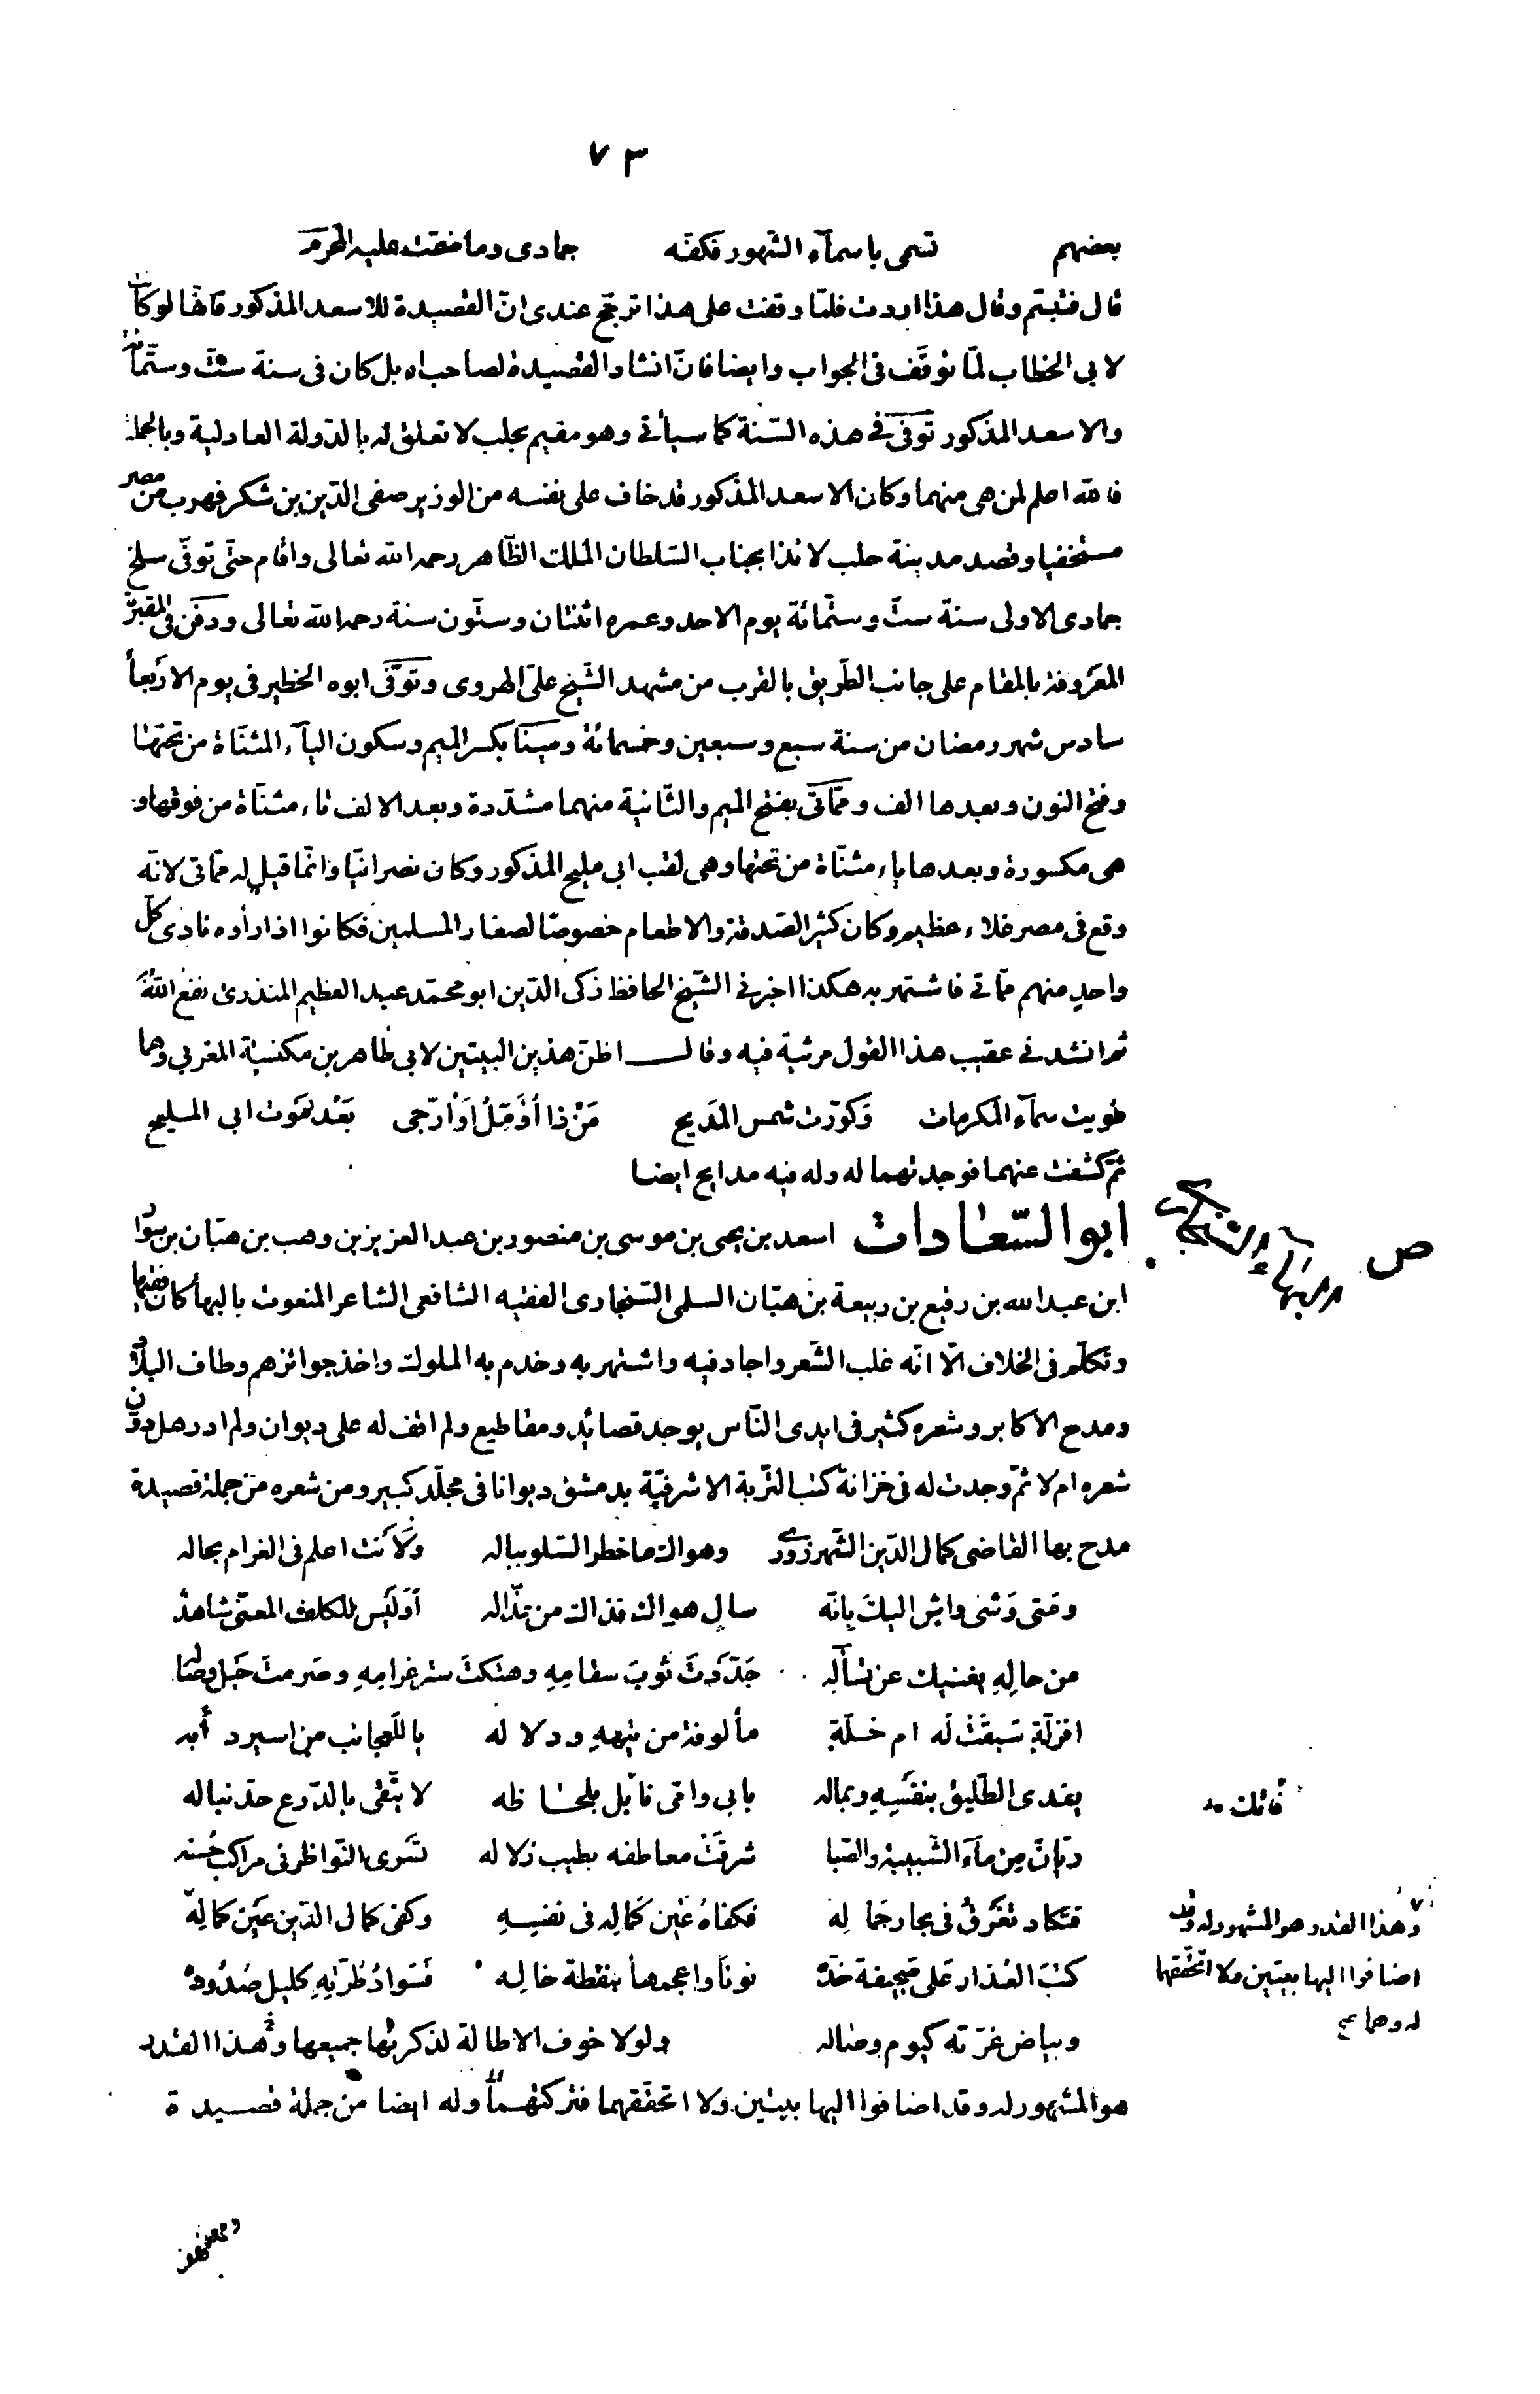 ٧٣
بعضهم تسمى باسمآء الشهور فكفه جمادى وما ضمت عليه المحرم
قال فتبسم وقال هذا اردت فلمّا وقفت على هذا ترجّح عندى انّ القصيدة للاسعد المذكور فانها لو كانت
لابى الخطاب لمّا توقّف فى الجواب وايضا فانّ انشاد القصيدة لصاحب اربل كان فى سنة ستّ وستّمائة
والاسعد المذكور توفّى فى هذه السّنة كما سيأتى وهو مقيم بحلب لا تعلق له بالدّولة العادلية وبالجملة
فالله اعلم لمن هى منهما وكان الاسعد المذكور قد خاف على نفسه من الوزير صفى الدّين بن شكر فهرب من مصر
مستخفيا وقصد مدينة حلب لائذا بجناب السّلطان الملك الظّاهر رحمه الله تعالى واقام حتّى توفّى سلخ
جمادى الاولى سنة ستّ وستّمائة يوم الاحد وعمره اثنتان وستّون سنة رحمه الله تعالى ودفن فى المقبرة
المعروفة بالمقام على جانب الطّريق بالقرب من مشهد الشّيخ علىّ الهروى وتوفّى ابوه الخطير فى يوم الاربعأ
سادس شهر رمضان من سنة سبع وسبعين وخمسمائة ومينا بكسر الميم وسكون اليآء المثنّاة من تحتها
وفتح النون وبعدها الف ومماتى بفتح الميم والثّانية منهما مشدّدة وبعد الالف تاء مثنّاة من فوقها و
هى مكسورة وبعدها ياء مثنّاة من تحتها وهى لقب ابى مليح المذكور وكان نصرانيّا وانّما قيل له ممّاتى لانّه
وقع فى مصر غلاء عظيم وكان كثير الصّدقة والاطعام خصوصًا لصغار المسلمين فكانوا اذا رأوه نادى كلّ
واحدٍ منهم ممّاتى فاشتهر به هكذا اخبرنى الشّيخ الحافظ زكى الدّين ابو محمّد عبد العظيم المنذرى نفع الله به
ثم انشد فى عقيب هذا القول مرثية فيه وقال اظنّ هذين البيتين لابى طاهر بن مكنسة المغربى وهما
طويت سمآء المكرمات وَكوّرت شمس المَديح مَنْ ذا اُؤَمِّلُ اَوْ ارَجى بَعْد موت ابى المليح
ثمّ كشفت عنهما فوجدتهما له وله فيه مدايح ايضا
ابو السّعادات اسعد بن يحيى بن موسى بن منصور بن عبد العزيز بن وهب بن هبّان بن سوار
ابن عبد الله بن رفيع بن ربيعة بن هبّان السلمى السّنجارى الفقيه الشافعى الشاعر المنعوت بالبهأ كان فقيها
وتكلّم فى الخلاف الّا انّه غلب الشّعر واجاد فيه واشتهر به وخدم به الملوك واخذ جوائزهم وطاف البلاد
ومدح الاكابر وشعره كثير فى ايدى النّاس يوجد قصائد ومقاطيع ولم اقف له على ديوان ولم ادر هل دوّن
شعره ام لا ثمّ وجدت له فى خزانة كتب التّربة الاشرفيّة بدمشق ديوانا فى مجلّد كبير ومن شعره من جملة قصيدة
مدح بها القاضى كمال الدّين الشّهرزورى وهواك ما خطر السّلو بباله ولَاَنت اعلم فى الغرام بحاله
ومَتى وَشى واشٍ اليكَ بانّه سالٍ هواك فذاك من عذّاله اَوَلَيْس للكلف المعنّى شاهدٌ
من حالِهِ يغنيك عن تسآلِه جَدّدْتَ ثوبَ سقامِهِ وهتكتَ ستر غرامِهِ وصَرمتَ حَبل وصاله
افزلّةٍ سَبقَتْ لَه ام خلّةٍ مألوفة من تيههِ ودلاله ياللَعجائب من اسيرٍ دأبه
يفدى الطّليق بنفسِهِ وبماله بابى وامّى نابل بلحاظه لا يتّقى بالدّرع حدّ نباله
ريّانَ مِن مآء الشّبيبة والصّبا شرقتْ معاطفه بطيب زلاله تسرى النّواظر فى مراكب حُسنه
فتكاد تغرقُ فى بحار جَمالِه فكفاهُ عَين كماله فى نفسِهِ وكفى كمال الدّين عَين كمالِه
كتبَ العذار على صَحيفة خدّه نونًا واعجمها بنقطة خالِه فسَوادُ طُرّتهِ كليل صُدُوده
وبياض غرّته كيوم وصاله ولولا خوف الاطالة لذكرتها جميعها وهذا القدر
هو المشهور له وقد اضافوا اليها بيتين ولا اتحقّقهما فتركتهما وله ايضا من جملة قصيدة
ص
فاتك
وهذا القدر هو المشهور له وقد
اضافوا اليها بيتين ولا اتحققهما
له وهما